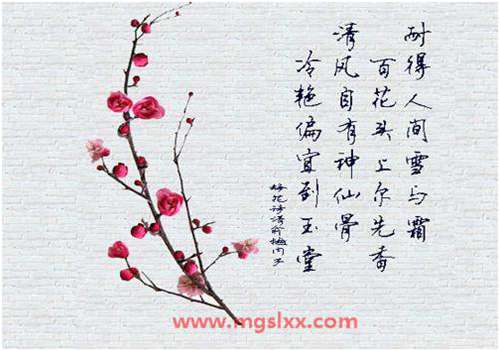 耐得人间雪与霜
百花头上尔先香
清风自有神仙骨
冷艳偏宜到玉堂
梅花诗清俞樾内子
www.mgslxx.com